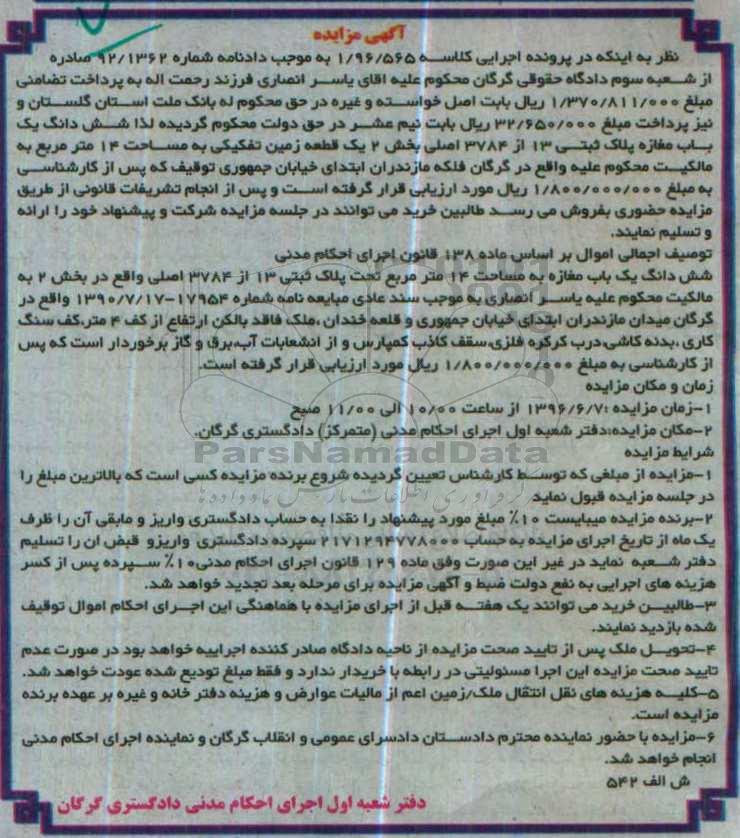 آگهی مزایده
نظر به اینکه در پرونده اجرایی کلاسه ۱/۹۶/۵۶۵ به موجب دادنامه شماره ۹۲/۱۳۶۲ صادره
از شعبه سوم دادگاه حقوقی گرگان محکوم علیه اقای یاسر انصاری فرزند رحمت اله به پرداخت تضامنی
مبلغ ۱/۳۷۰/۸۱۱/۰۰۰ ریال بابت اصل خواسته و غیره در حق محکوم له بانک ملت استان گلستان و
نیز پرداخت مبلغ ۳۲/۶۵۰/۰۰۰ ریال بابت نیم عشر در حق دولت محکوم گردیده لذا شش دانگ یک
باب مغازه پلاک ثبتی ۱۳ از ۳۷۸۴ اصلی بخش ۲ یک قطعه زمین تفکیکی به مساحت ۱۴ متر مربع به
مالکیت محکوم علیه واقع در گرگان فلکه مازندران ابتدای خیابان جمهوری توقیف که پس از کارشناسی
به مبلغ ۱/۸۰۰/۰۰۰/۰۰۰ ریال مورد ارزیابی قرار گرفته است و پس از انجام تشریفات قانونی از طریق
مزایده حضوری بفروش می رسد طالبین خرید می توانند در جلسه مزایده شرکت و پیشنهاد خود را ارائه
و تسلیم نمایند.
توصیف اجمالی اموال بر اساس ماده ۱۳۸ قانون اجرای احکام مدنی
شش دانگ یک باب مغازه به مساحت ۱۴ متر مربع تحت پلاک ثبتی ۱۳ از ۳۷۸۴ اصلی واقع در بخش ۲ به
مالکیت محکوم علیه یاسر انصاری به موجب سند عادی مبایعه نامه شماره ۱۷۹۵۴-۱۳۹۰/۷/۱۷ واقع در
گرگان میدان مازندران ابتدای خیابان جمهوری و قلعه خندان ،ملک فاقد بالکن ارتفاع از کف ۴ متر،کف سنگ
کاری ،بدنه کاشی،درب کرکره فلزی،سقف کاذب کمپارس و از انشعابات آب،برق و گاز برخوردار است که پس
از کارشناسی به مبلغ ۱/۸۰۰/۰۰۰/۰۰۰ ریال مورد ارزیابی قرار گرفته است.
زمان و مکان مزایده
۱-زمان مزایده :۱۳۹۶/۶/۷ از ساعت ۱۰/۰۰ الی ۱۱/۰۰ صبح
۲-مکان مزایده:دفتر شعبه اول اجرای احکام مدنی (متمرکز) دادگستری گرگان.
ParsNamadData
شرایط مزایده
۱-مزایده از مبلغی که توسط کارشناس تعیین گردیده شروع برنده مزایده کسی است که بالاترین مبلغ را
در جلسه مزایده قبول نماید
۲-برنده مزایده میبایست ۱۰٪ مبلغ مورد پیشنهاد را نقدا به حساب دادگستری واریز و مابقی آن را ظرف
یک ماه از تاریخ اجرای مزایده به حساب ۲۱۷۱۲۹۴۷۷۸۰۰۰ سپرده دادگستری واریزو قبض ان را تسلیم
دفتر شعبه نماید در غیر این صورت وفق ماده ۱۲۹ قانون اجرای احکام مدنی۱۰٪ سپرده پس از کسر
هزینه های اجرایی به نفع دولت ضبط و آگهی مزایده برای مرحله بعد تجدید خواهد شد.
۳-طالبین خرید می توانند یک هفته قبل از اجرای مزایده با هماهنگی این اجرای احکام اموال توقیف
شده بازدید نمایند.
۴-تحویل ملک پس از تایید صحت مزایده از ناحیه دادگاه صادر کننده اجراییه خواهد بود در صورت عدم
تایید صحت مزایده این اجرا مسئولیتی در رابطه با خریدار ندارد و فقط مبلغ تودیع شده عودت خواهد شد.
۵-کلیه هزینه های نقل انتقال ملک/زمین اعم از مالیات عوارض و هزینه دفتر خانه و غیره بر عهده برنده
مزایده است.
۶-مزایده با حضور نماینده محترم دادستان دادسرای عمومی و انقلاب گرگان و نماینده اجرای احکام مدنی
انجام خواهد شد.
ش الف ۵۴۲
دفتر شعبه اول اجرای احکام مدنی دادگستری گرگان